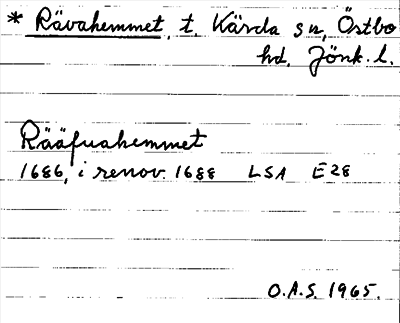 * Rävahemmet, t. Kärda sn, Östbo
hd, Jönk. l.
Rääfuahemmet
1686, i renov. 1688 LSA E28
O.A.S. 1965.